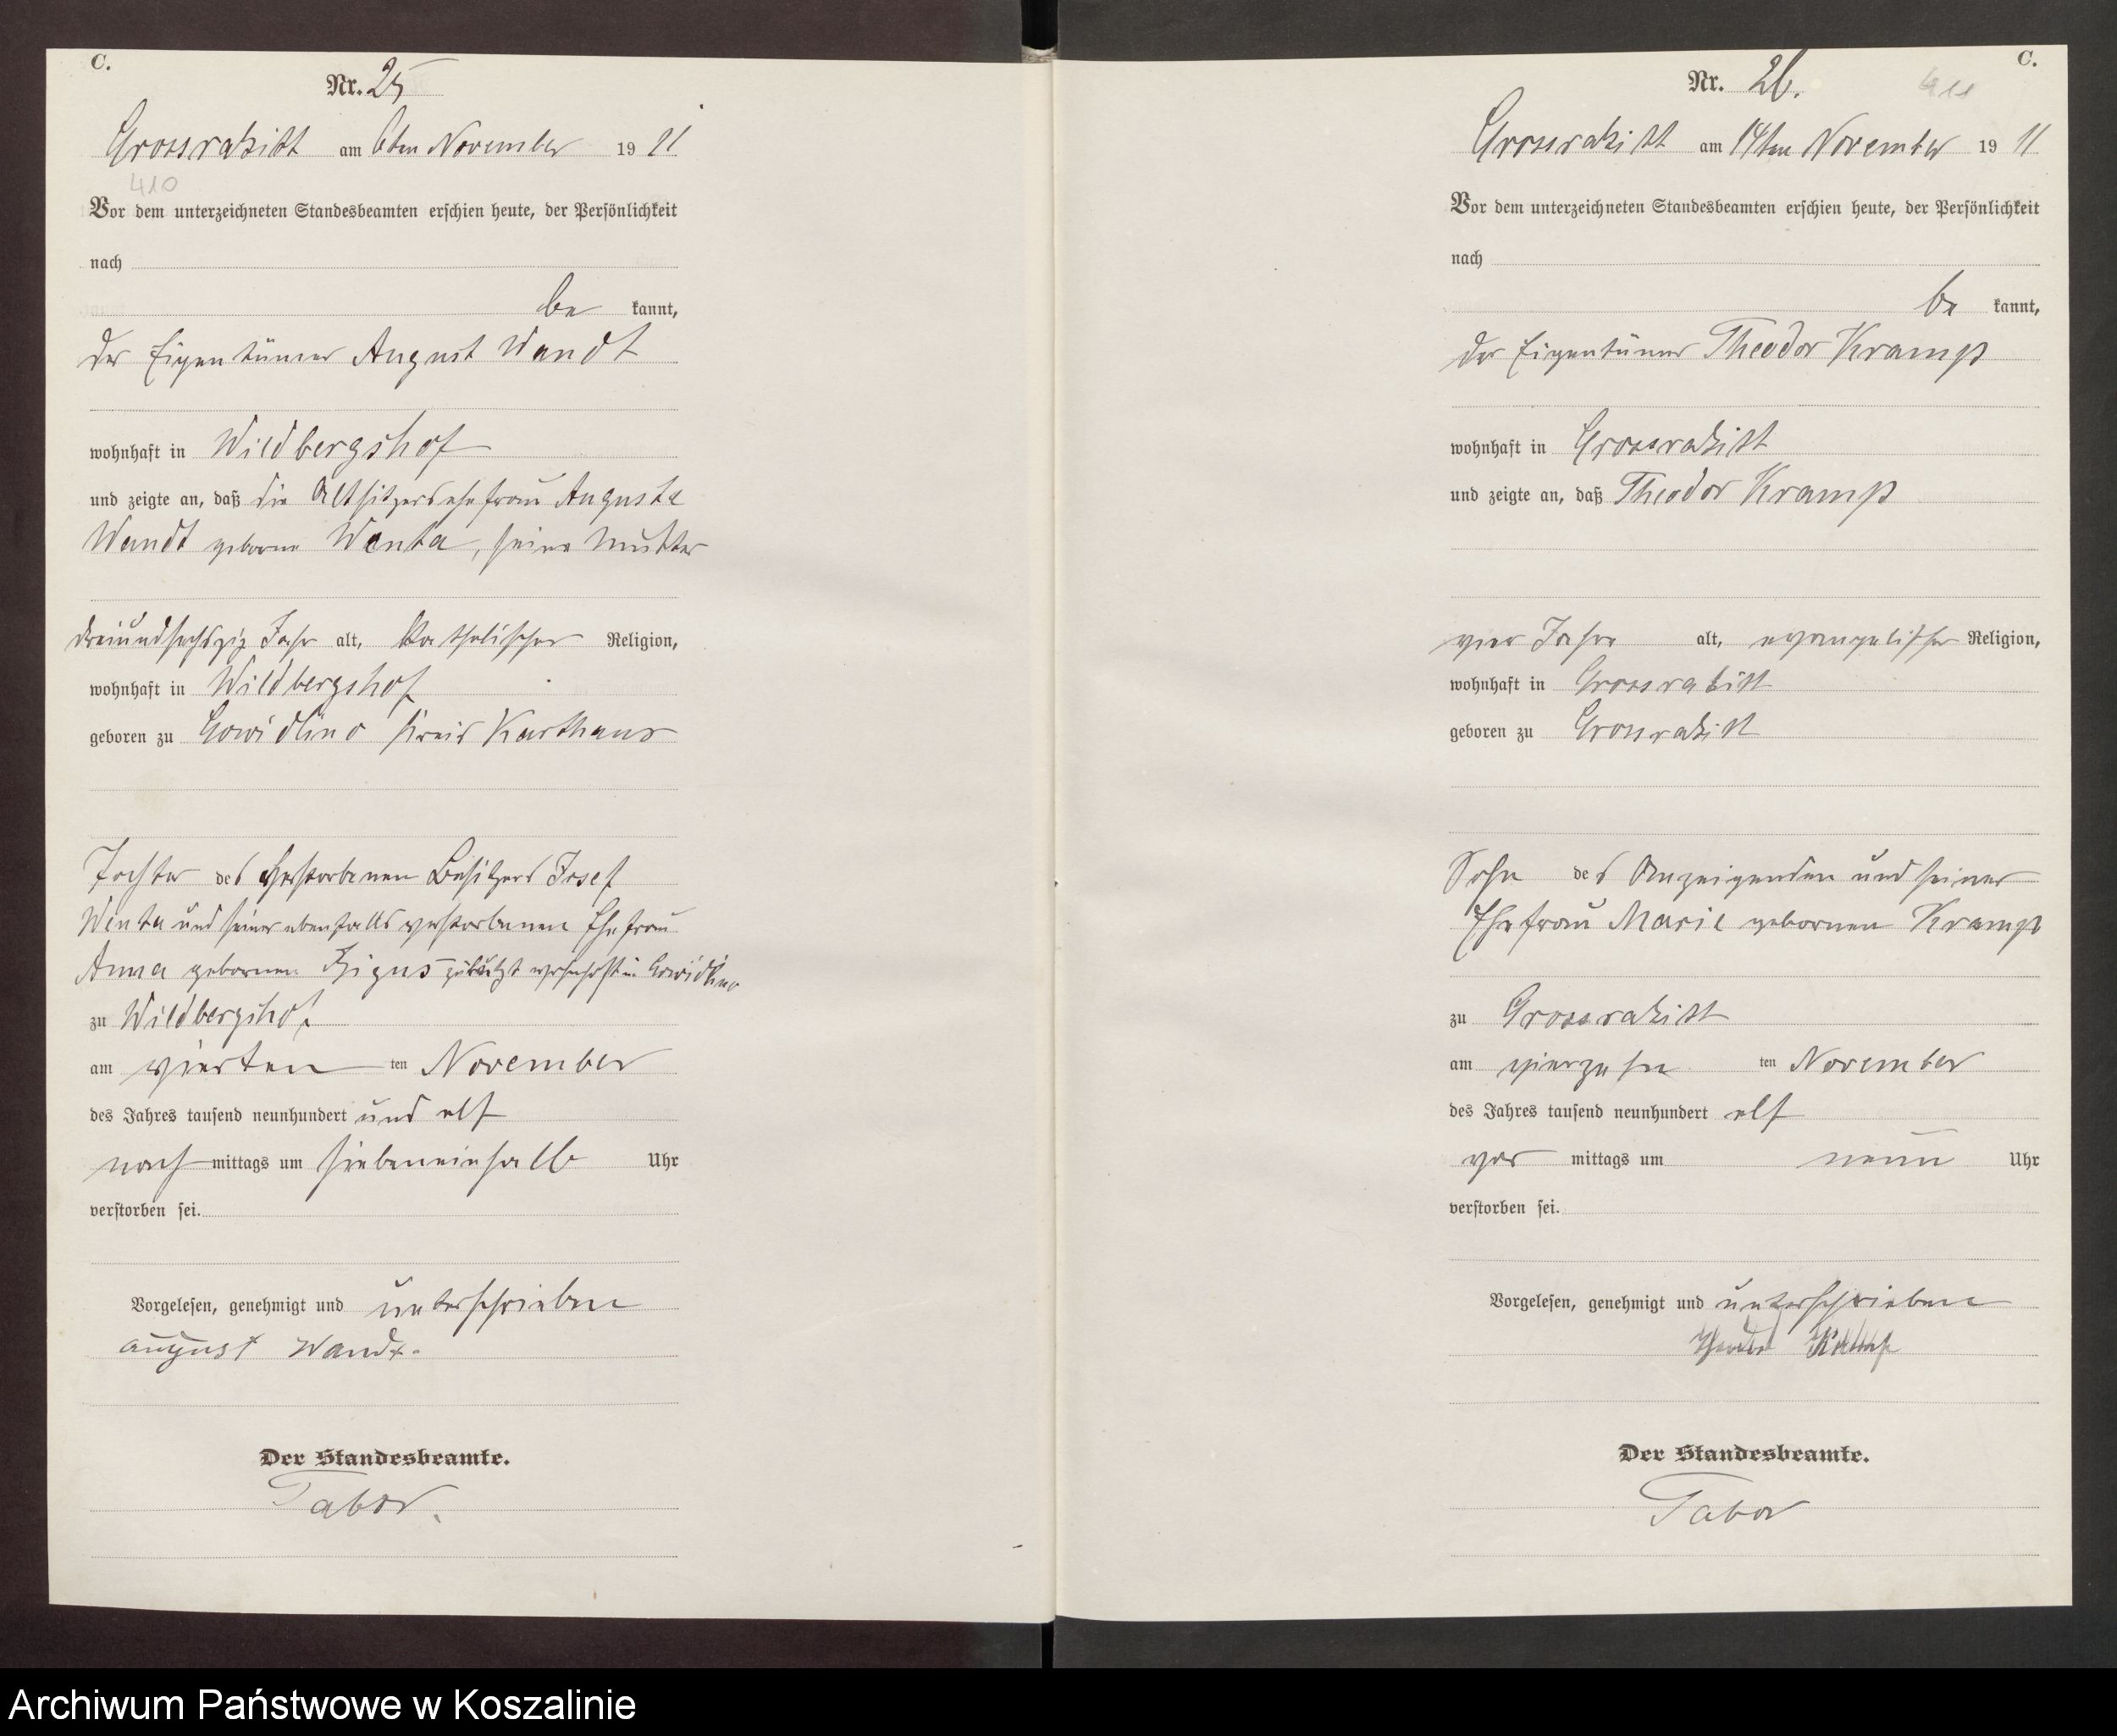 C.
Nr. 25
Grossrakitt am 6ten November 1911
410
Vor dem unterzeichneten Standesbeamten erschien heute, der Persönlichkeit
nach
be kannt,
der Eigentümer August Wandt
wohnhaft in Wildbergshof
und zeigte an, daß die Altsitzersehefrau Augusta
Wandt geborne Wenta, seine Mutter
dreiundsechszig Jahr alt, katholischer Religion,
wohnhaft in Wildbergshof
geboren zu Gowidlino Kreis Karthaus
Tochter des verstorbenen Besitzers Josef
Wenta und seiner ebenfalls verstorbenen Ehefrau
Anna gebornen zuletzt wohnhaft in Gowidlino
zu Wildbergshof
am vierten ten November
des Jahres tausend neunhundert und elf
nach mittags um siebeneinhalb Uhr
verstorben sei.
Vorgelesen, genehmigt und unterschrieben
august Wandt.
Der Standesbeamte.
Tabor.
C.
Nr. 26.
411
Grossrakitt am 14ten November 1911
Vor dem unterzeichneten Standesbeamten erschien heute, der Persönlichkeit
nach
be kannt,
der Eigentümer Theodor Kramp
wohnhaft in Grossrakitt
und zeigte an, daß Theodor Kramp
vier Jahre alt, evangelischer Religion,
wohnhaft in Grossrakitt
geboren zu Grossrakitt
Sohn des Anzeigenden und seiner
Ehefrau Marie gebornen Kramp
zu Grossrakitt
am vierzehn ten November
des Jahres tausend neunhundert elf
vor mittags um neun Uhr
verstorben sei.
Vorgelesen, genehmigt und unterschrieben
Theodor Kramp
Der Standesbeamte.
Tabor
Archiwum Państwowe w Koszalinie